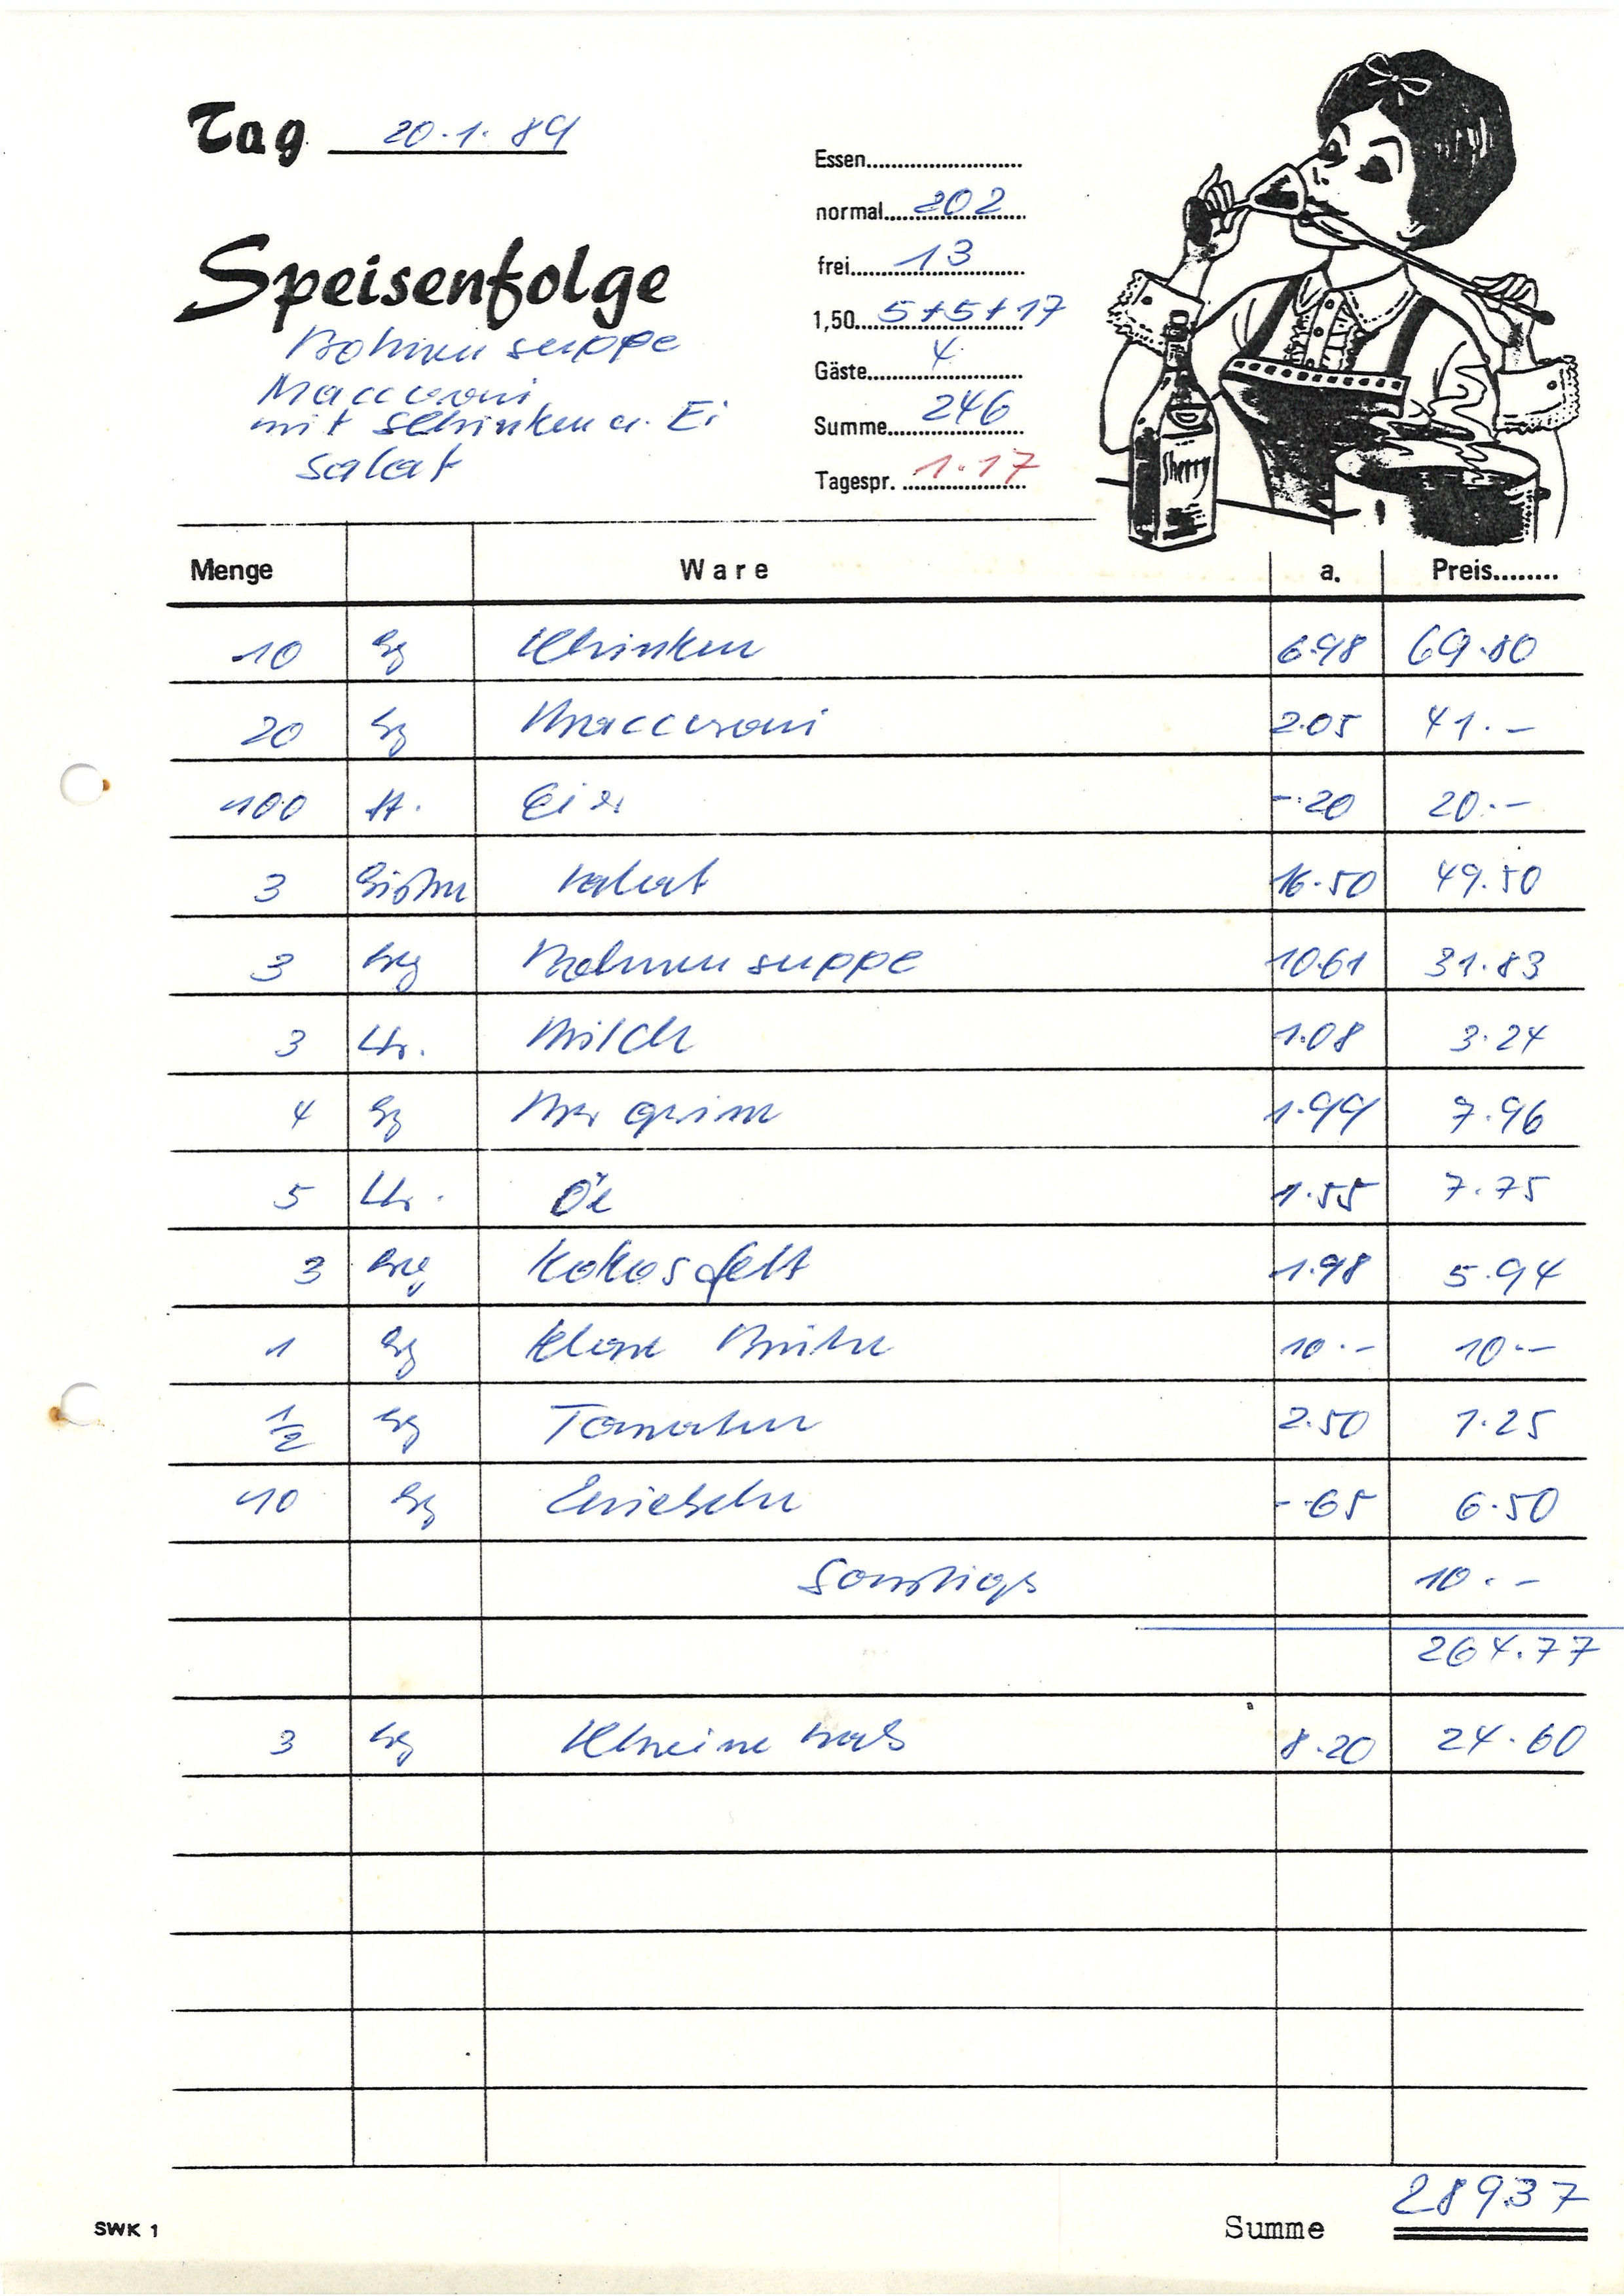 Tag 20.1.89
Essen
normal 202
frei 13
1,50 5+5+17
Gäste 4
Summe 246
Tagespr. 1.17
Speisenfolge
Bohnensuppe
Maccaroni
mit Schinken u. Ei
Salat
Sherry
Menge Ware a. Preis
10 kg Schinken 6.98 69.80
20 kg Maccaroni 2.05 41.-
100 St. Eier -.20 20.-
3 Salat 16.50 49.50
3 kg Bohnensuppe 10.61 31.83
3 Ltr. Milch 1.08 3.24
4 kg 1.99 7.96
5 Ltr. Öl 1.55 7.75
3 kg Kokosfett 1.98 5.94
1 kg klare Brühe 10.- 10.-
1/2 kg Tomaten 2.50 1.25
10 kg Zwiebeln -.65 6.50
Sonstiges 10.-
264.77
3 kg 8.20 24.60
Summe 289.37
SWK 1